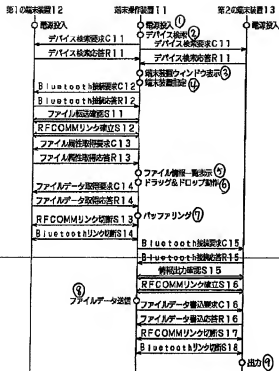 第1の端末装置12
端末操作装置11
第2の端末装置13
電源投入
電源投入①
電源投入
デバイス検索②
デバイス検索要求C11
デバイス検索要求C11
デバイス検索応答R11
デバイス検索応答R11
端末装置ウィンドウ表示③
端末装置指定④
Bluetooth接続要求C12
Bluetooth接続応答R12
ファイル転送確認S11
RFCOMMリンク確立S12
ファイル属性取得要求C13
ファイル属性取得応答R13
ファイル情報一覧表示⑤
ドラッグ&ドロップ動作⑥
ファイルデータ取得要求C14
ファイルデータ取得応答R14
バッファリング⑦
RFCOMMリンク切断S13
Bluetoothリンク切断S14
Bluetooth接続要求C15
Bluetooth接続応答R15
情報出力確認S15
RFCOMMリンク確立S16
⑧
ファイルデータ送信
ファイルデータ書込要求C16
ファイルデータ書込応答R16
RFCOMMリンク切断S17
Bluetoothリンク切断S18
出力⑨